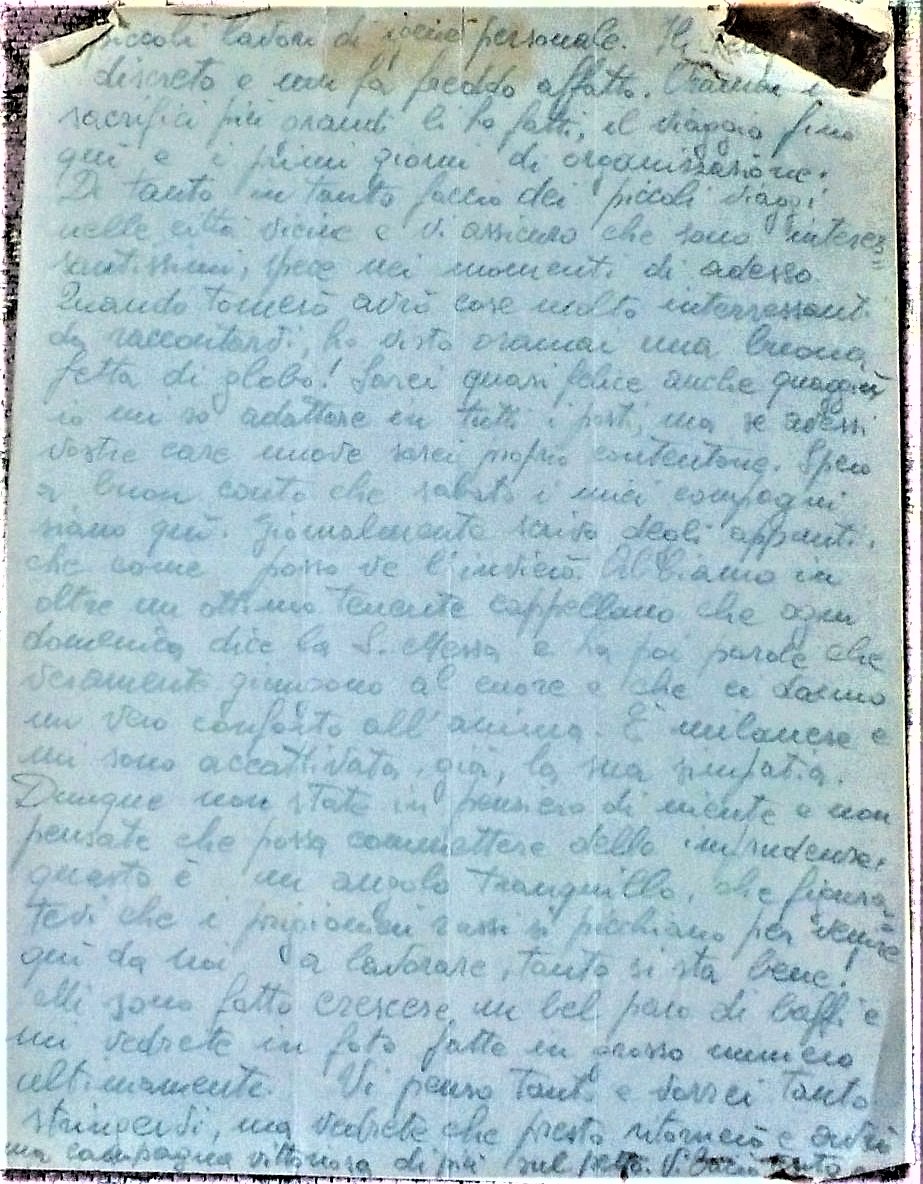 piccoli lavori di igiene personale. Il
discreto e non fà freddo affatto. Oramai i
sacrifici più grandi li ho fatti, il viaggio fino
quì e i primi giorni di organizzazione.
Di tanto in tanto faccio dei piccoli viaggi
nelle città vicine e vi assicuro che sono interes=
santissimi, spece nei momenti di adesso.
Quando tornerò avrò cose molto interressanti
da raccontarvi, ho visto oramai una buona
fetta di globo! Sarei quasi felice anche quaggiù
io mi so adattare in tutti i posti, ma se avessi
vostre care nuove sarei proprio contentone. Spero
a buon conto che sabato i miei compagni
siano quì. Giornalmente scrivo degli appunti,
che come posso ve l'invierò. Abbiamo in
oltre un ottimo tenente cappellano che ogni
domenica dice la S. Messa e ha poi parole che
veramente giungono al cuore e che ci danno
un vero conforto all'anima. È milanese e
mi sono accattivata, già, la sua simpatia.
Dunque non state in pensiero di niente e non
pensate che possa commettere delle imprudenze,
questo è un angolo tranquillo, che figura
tevi che i prigionieri russi si picchiano per venire
quì da noi a lavorare, tanto si sta bene!
Mi sono fatto crescere un bel paio di baffi e
mi vedrete in foto fatte in grosso numero
ultimamente. Vi penso tanto e vorrei tanto
stringervi, ma vedrete che presto ritornerò e avrò
una campagna vittoriosa di più sul petto. Vi bacio tanto